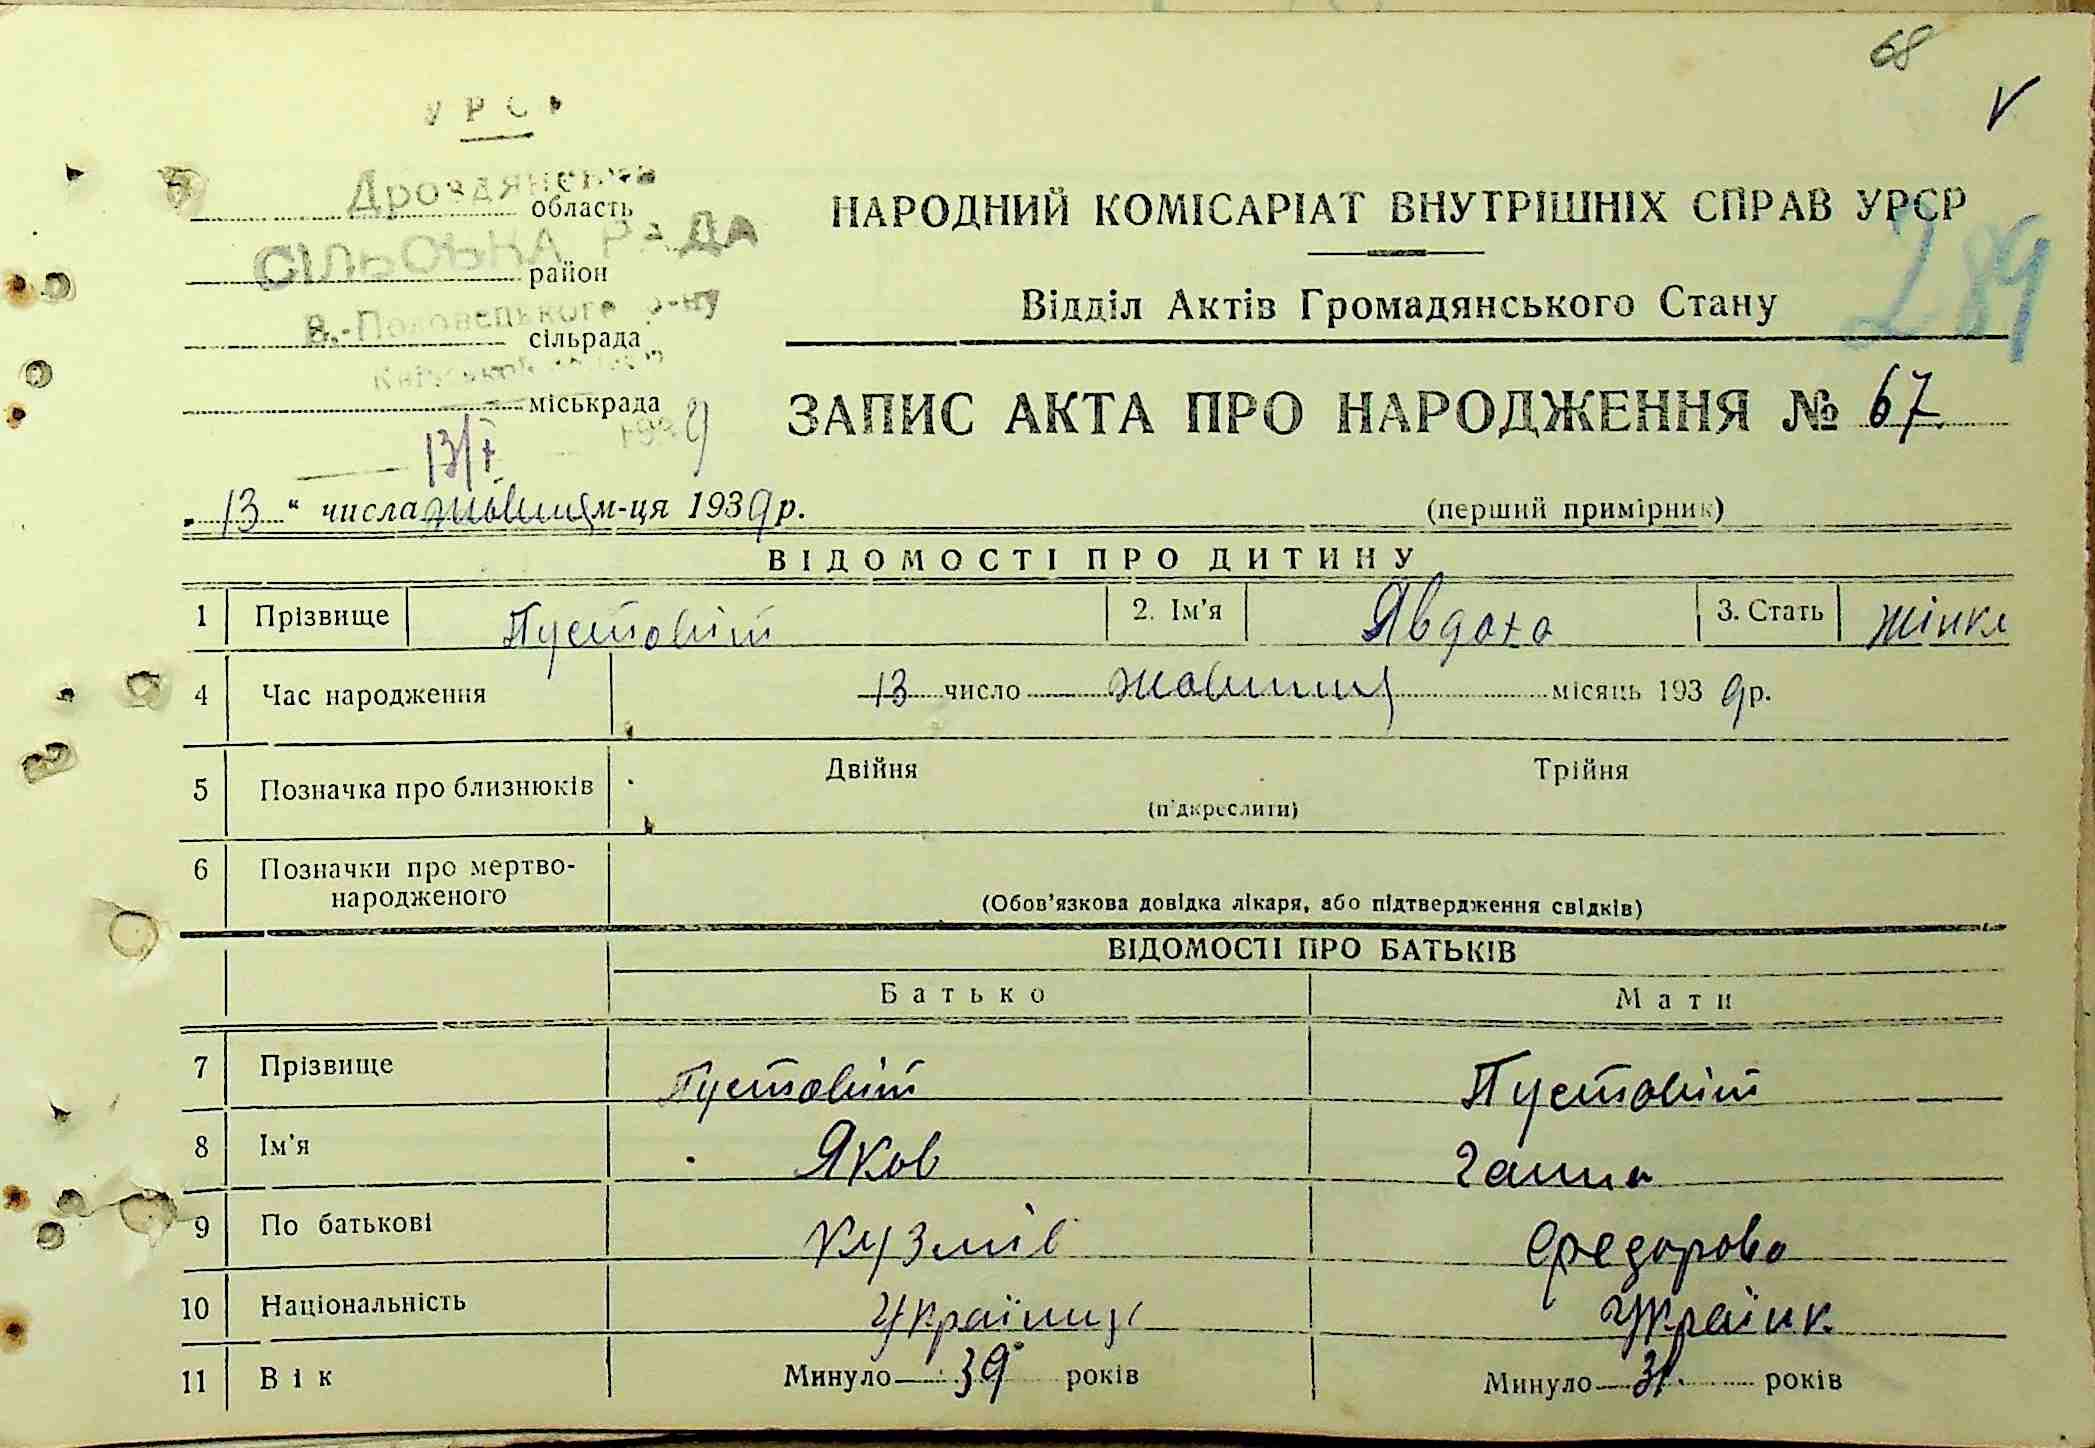 68
V
УРСР
Дроздянська
область
СІЛЬСЬКА РАДА
район
В.-Половецького р-ну
сільрада
Київської
міськрада
13/X 1939
НАРОДНИЙ КОМІСАРІАТ ВНУТРІШНІХ СПРАВ УРСР
289
Відділ Актів Громадянського Стану
ЗАПИС АКТА ПРО НАРОДЖЕННЯ № 67
„13“ числа жовтня м-ця 1939 р.
(перший примірник)
ВІДОМОСТІ ПРО ДИТИНУ
1 Прізвище Пустовіт 2. Ім'я Явдоха 3. Стать жінка
4 Час народження 13 число жовтня місяць 1939 р.
5 Позначка про близнюків Двійня Трійня
(підкреслити)
6 Позначки про мертво-
народженого
(Обов'язкова довідка лікаря, або підтвердження свідків)
ВІДОМОСТІ ПРО БАТЬКІВ
Батько Мати
7 Прізвище Пустовіт Пустовіт
8 Ім'я Яков Ганна
9 По батькові Кузмів Федорова
10 Національність Українць Україик
11 Вік Минуло 39 років Минуло 31 років